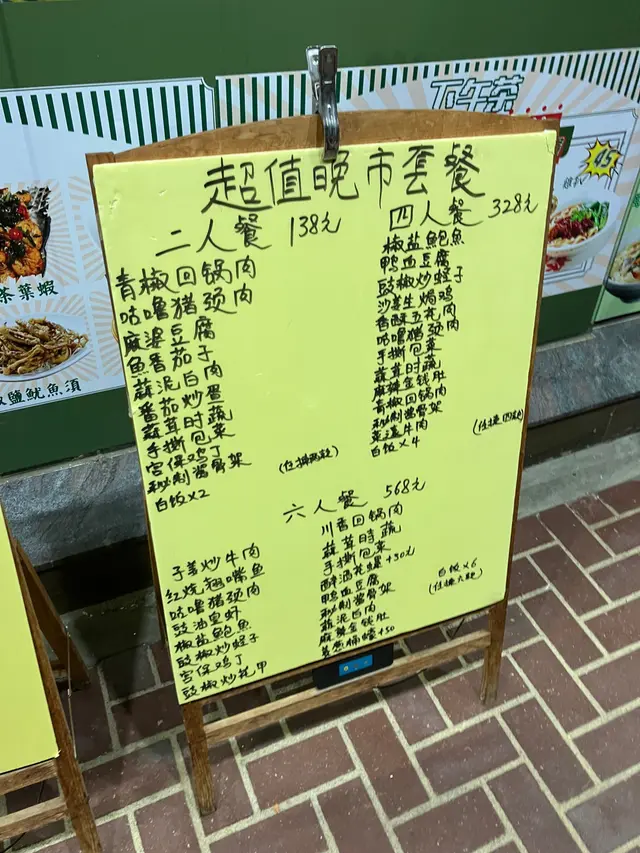 下午茶
45
茶葉蝦
椒鹽魷魚須
超值晚市套餐
二人餐 138元
青椒回锅肉
咕噜猪颈肉
麻婆豆腐
鱼香茄子
蒜泥白肉
番茄炒蛋
蒜茸时蔬
手撕包菜
宫保鸡丁
秘制酱骨架
白饭×2
(任拣两款)
四人餐 328元
椒盐鲍鱼
鸭血豆腐
豉椒炒蛏子
沙姜生焗鸡
香酥五花肉
咕噜猪颈肉
手撕包菜
蒜茸时蔬
麻辣金钱肚
青椒回锅肉
秘制酱骨架
菜远牛肉
白饭×4
(任拣四款)
六人餐 568元
子姜炒牛肉
红烧翅嘴鱼
咕噜猪颈肉
豉油皇虾
椒盐鲍鱼
豉椒炒蛏子
宫保鸡丁
豉椒炒花甲
川香回锅肉
蒜茸时蔬
手撕包菜
醉酒花螺+50元
鸭血豆腐
秘制酱骨架
蒜泥白肉
麻辣金钱肚
+50
白饭×6
(任拣六款)